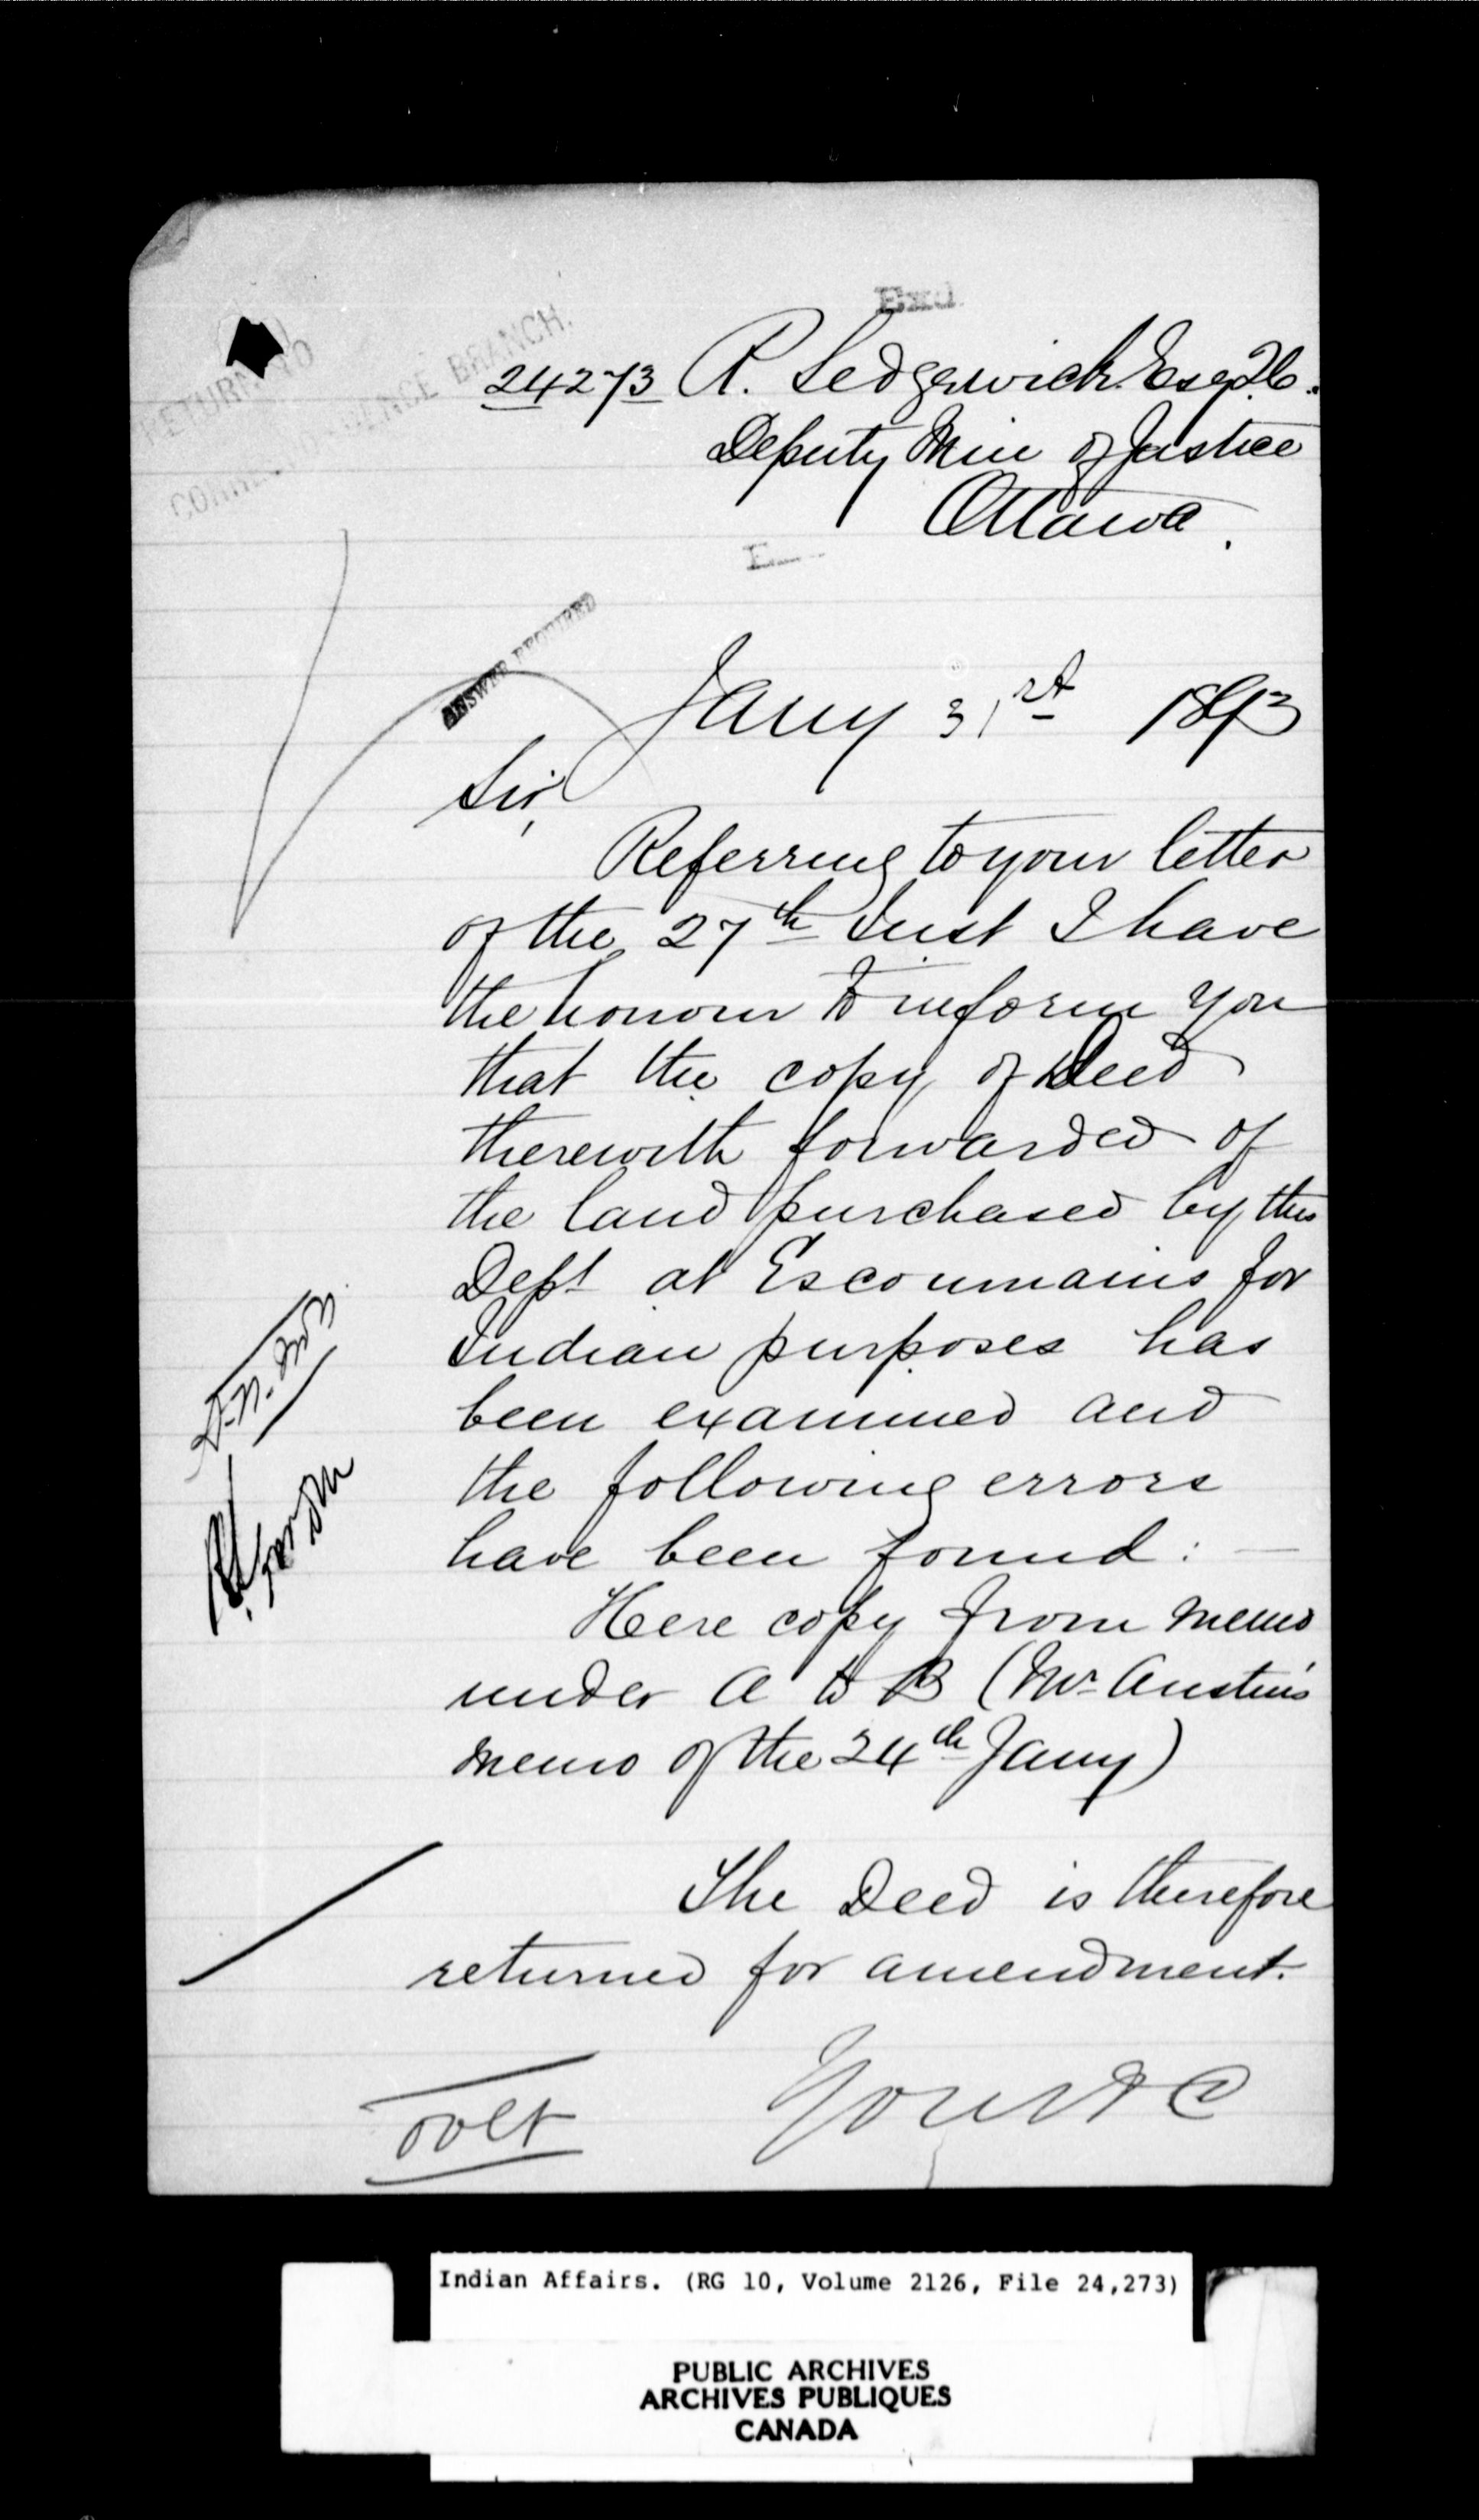 Exd.
RETURN TO
CORRESPONDENCE BRANCH.
24273 R. Sedgewick Esq. Q.C.
Deputy Min of Justice
Ottawa.
ANSWER REQUIRED
Jany 31st 1893
Sir,
Referring to your letter
of the 27th Inst I have
the honour to inform you
that the copy of Deed
therewith forwarded of
the land purchased by this
Dept at Escoumains for
Indian purposes has
been examined and
the following errors
have been found: —
Here copy from memo
under A to B (Mr Austin's
memo of the 24th Jany)
The Deed is therefore
returned for amendment.
Yours &c
Indian Affairs. (RG 10, Volume 2126, File 24,273)
PUBLIC ARCHIVES
ARCHIVES PUBLIQUES
CANADA